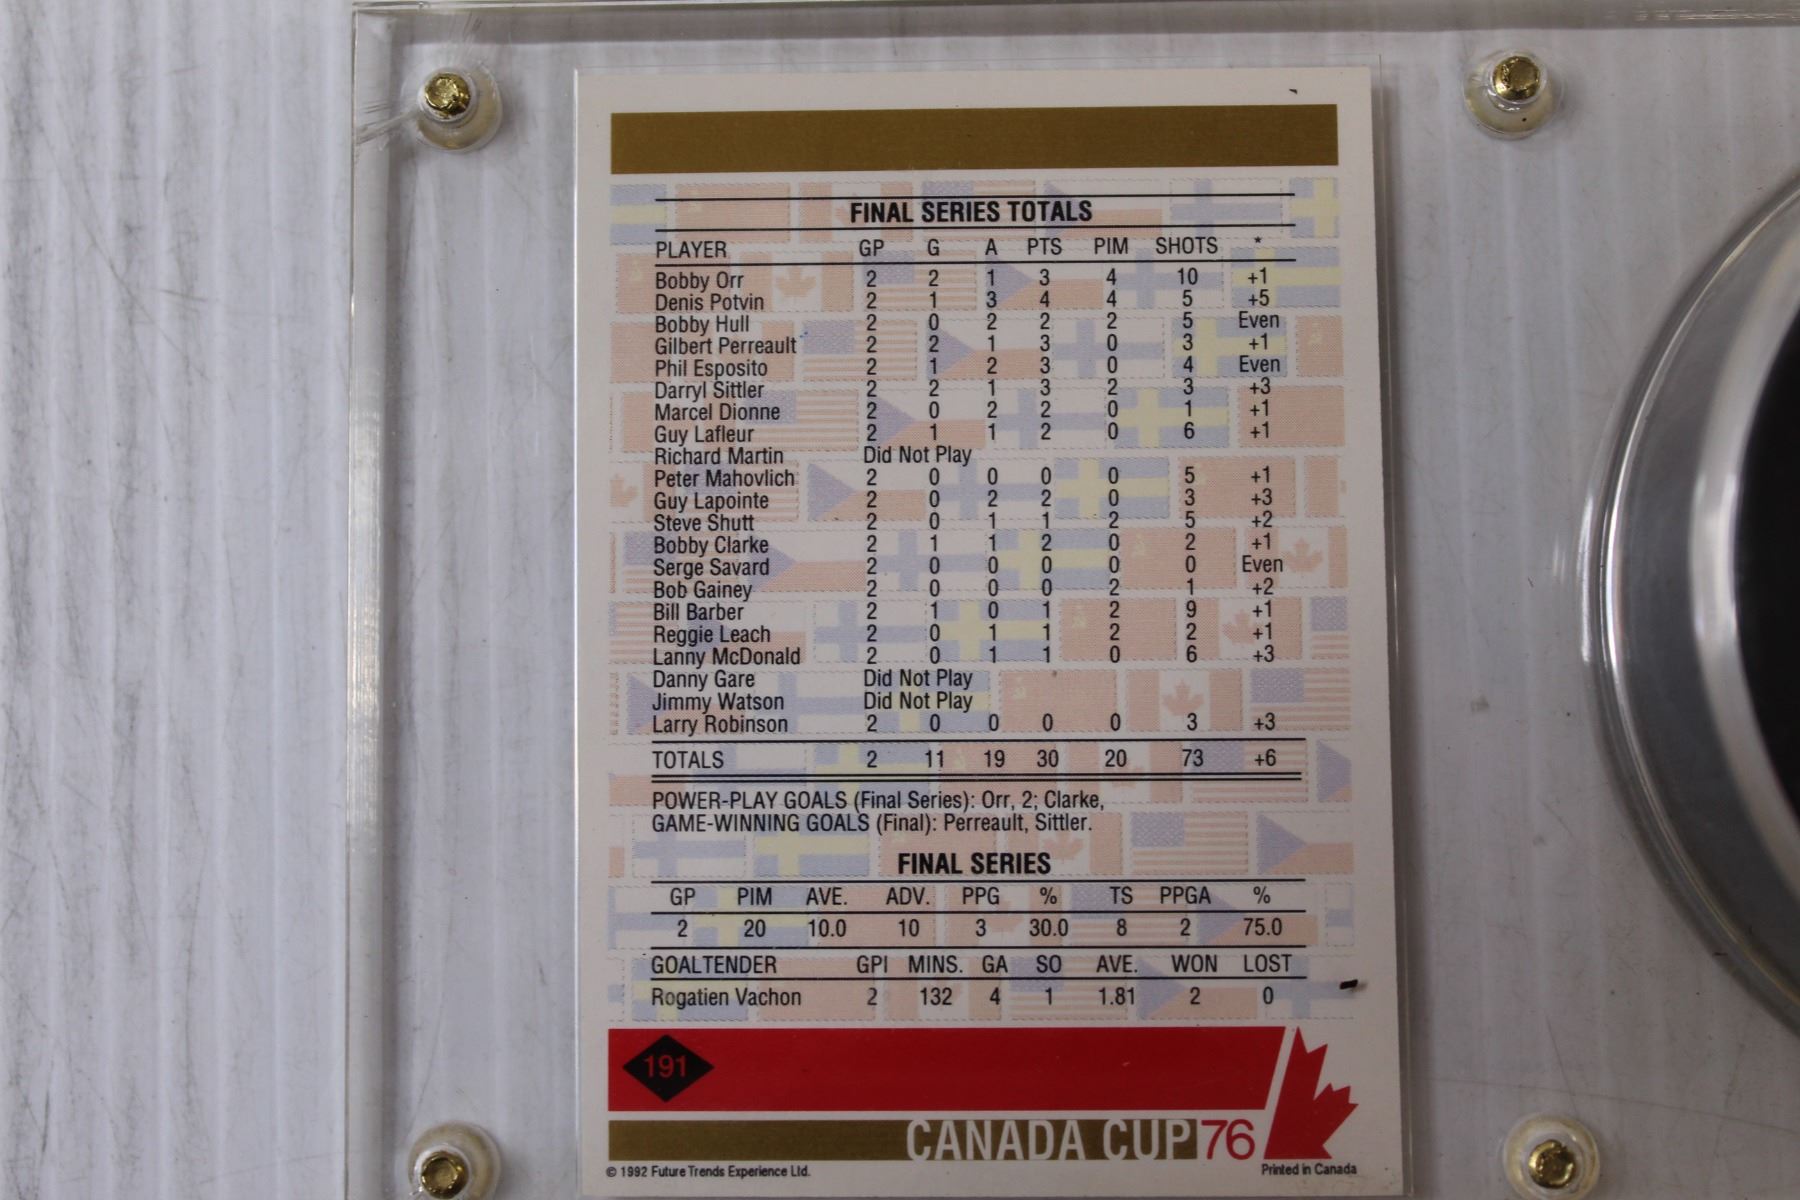 FINAL SERIES TOTALS
PLAYER GP G A PTS PIM SHOTS *
Bobby Orr 2 2 1 3 4 10 +1
Denis Potvin 2 1 3 4 4 5 +5
Bobby Hull 2 0 2 2 2 5 Even
Gilbert Perreault 2 2 1 3 0 3 +1
Phil Esposito 2 1 2 3 0 4 Even
Darryl Sittler 2 2 1 3 2 3 +3
Marcel Dionne 2 0 2 2 0 1 +1
Guy Lafleur 2 1 1 2 0 6 +1
Richard Martin Did Not Play
Peter Mahovlich 2 0 0 0 0 5 +1
Guy Lapointe 2 0 2 2 0 3 +3
Steve Shutt 2 0 1 1 2 5 +2
Bobby Clarke 2 1 1 2 0 2 +1
Serge Savard 2 0 0 0 0 0 Even
Bob Gainey 2 0 0 0 2 1 +2
Bill Barber 2 1 0 1 2 9 +1
Reggie Leach 2 0 1 1 2 2 +1
Lanny McDonald 2 0 1 1 0 6 +3
Danny Gare Did Not Play
Jimmy Watson Did Not Play
Larry Robinson 2 0 0 0 0 3 +3
TOTALS 2 11 19 30 20 73 +6
POWER-PLAY GOALS (Final Series): Orr, 2; Clarke,
GAME-WINNING GOALS (Final): Perreault, Sittler.
FINAL SERIES
GP PIM AVE. ADV. PPG % TS PPGA %
2 20 10.0 10 3 30.0 8 2 75.0
GOALTENDER GPI MINS. GA SO AVE. WON LOST
Rogatien Vachon 2 132 4 1 1.81 2 0
191
CANADA CUP 76
© 1992 Future Trends Experience Ltd. Printed in Canada